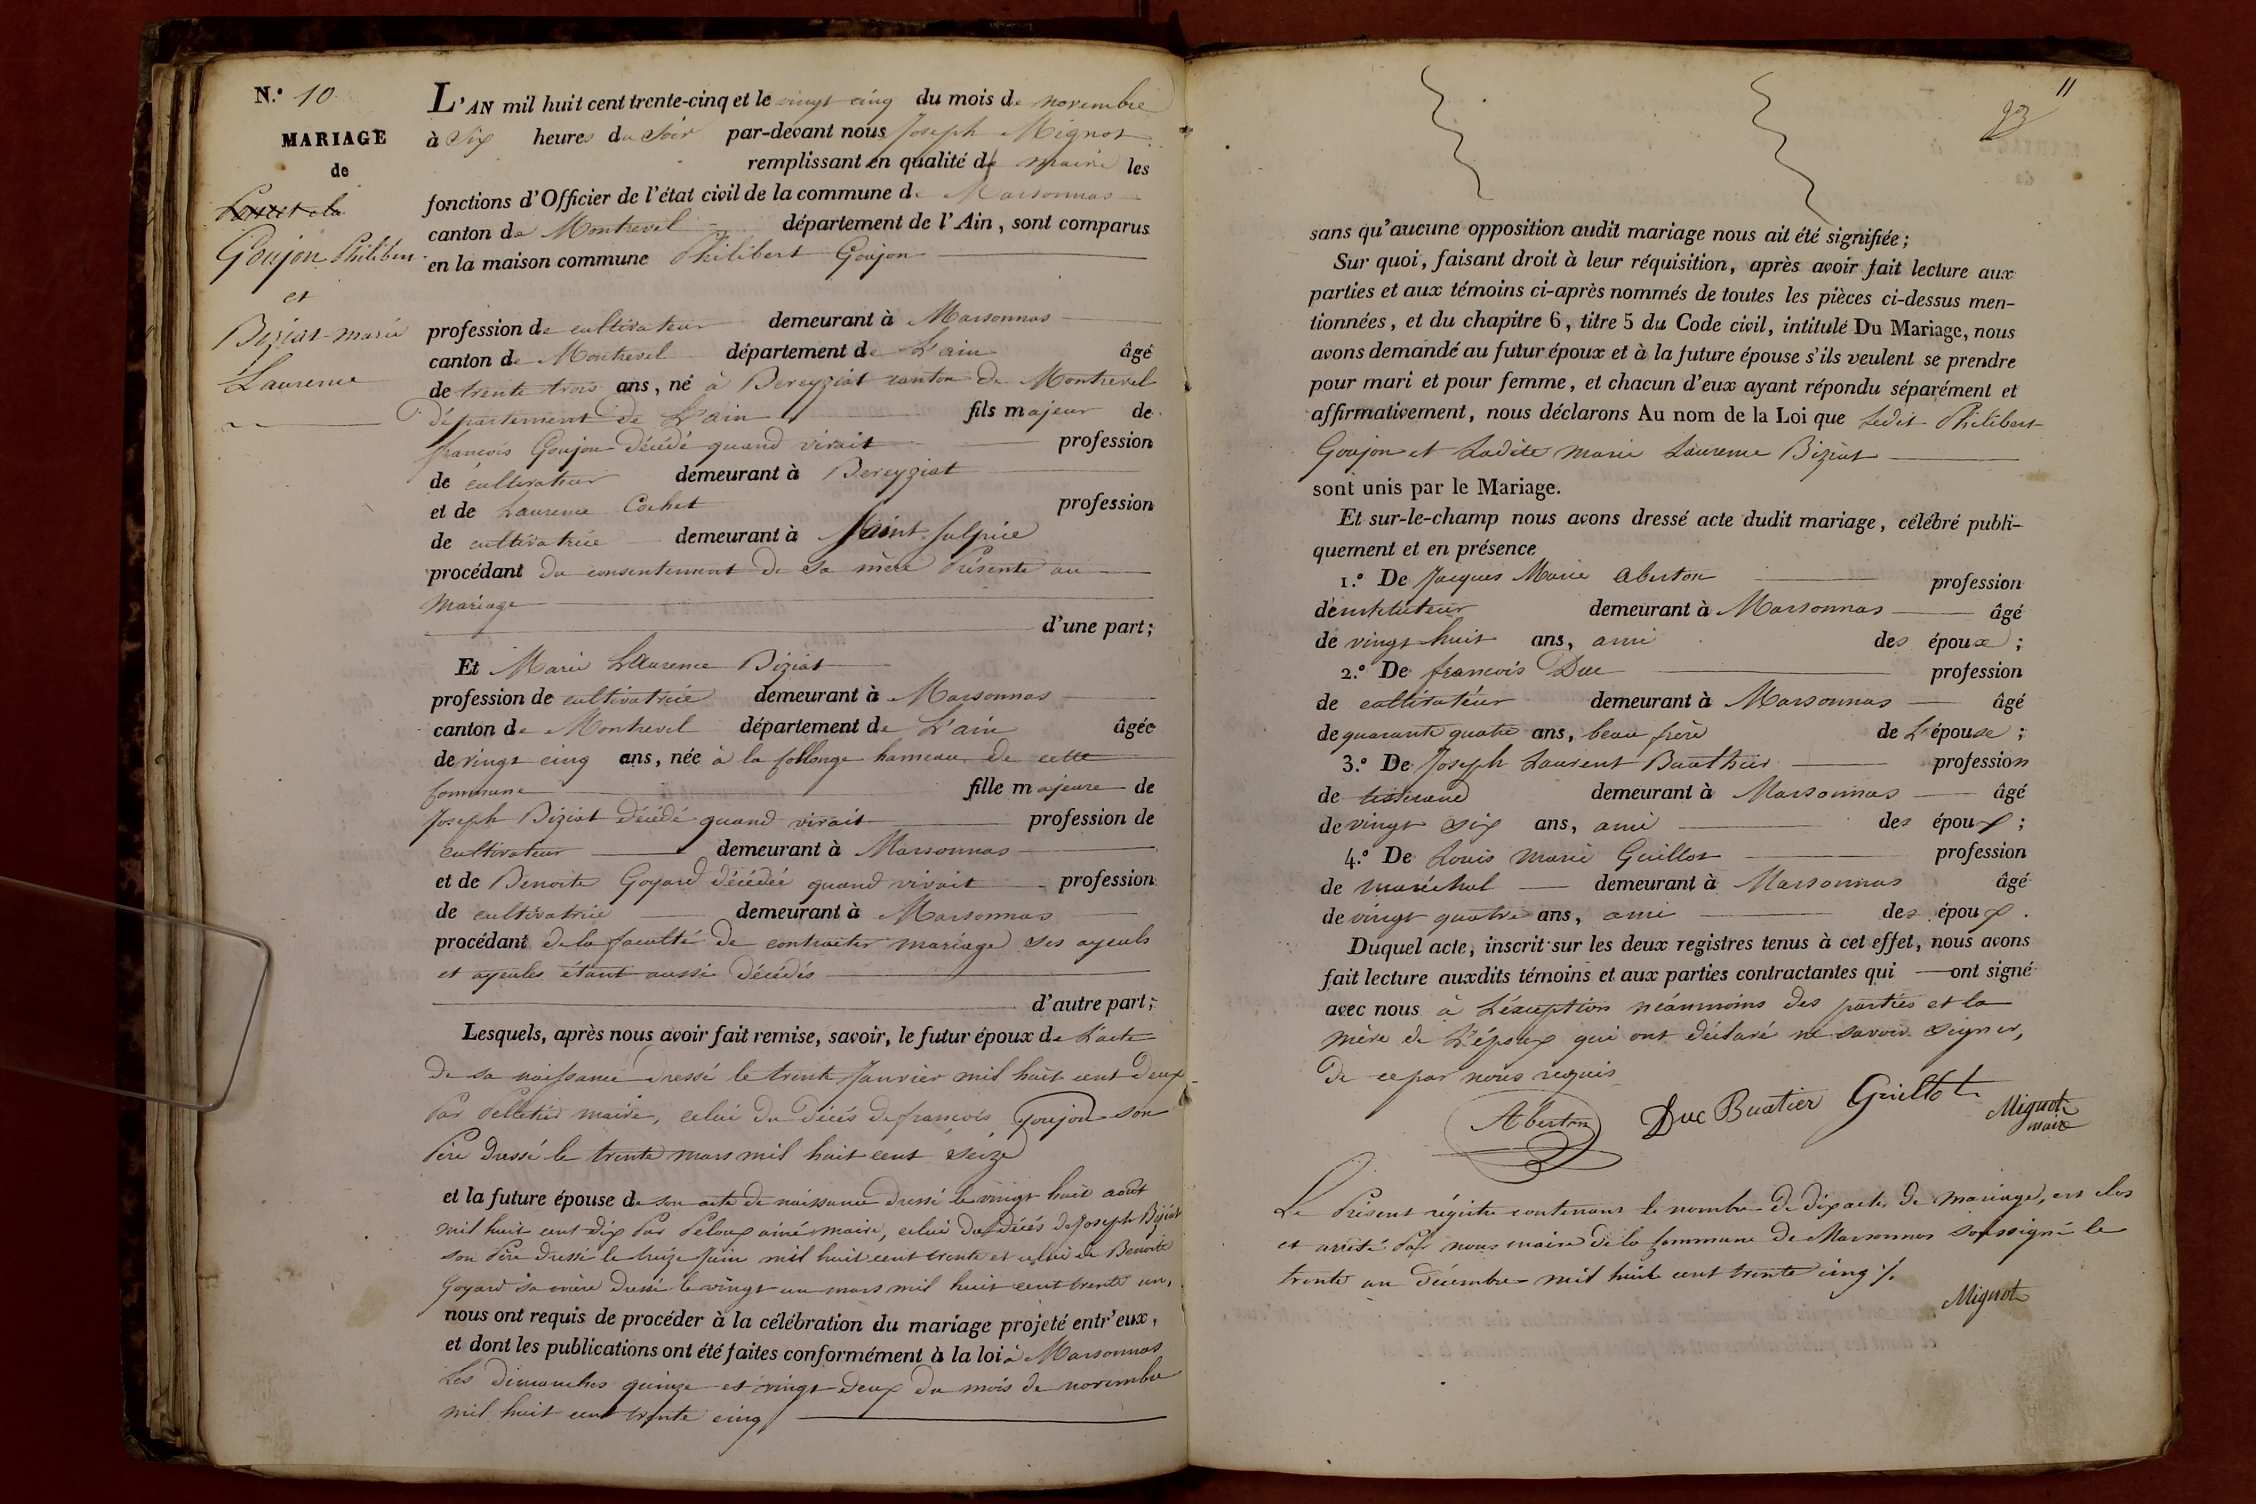 N.° 10
MARIAGE
de
Goujon Philibert
et
Biziat marie
Laurence
L'AN mil huit cent trente-cinq et le vingt cinq du mois de novembre
à Six heures du Soir par-devant nous Joseph Mignot
remplissant en qualité de maire les
fonctions d'Officier de l'état civil de la commune de Marsonnas
canton de Montrevel département de l'Ain, sont comparus
en la maison commune Philibert Goujon
profession de cultivateur demeurant à Marsonnas
canton de Montrevel département de L'ain âgé
de trente trois ans, né à Bereyziat canton de Montrevel
département de L'ain fils majeur de
françois Goujon décédé quand vivait profession
de cultivateur demeurant à Bereyziat
et de Laurence Cochet profession
de cultivatrice demeurant à Saint Sulpice
procédant du consentement de sa mère Présente au
mariage
d'une part;
Et Marie Laurence Biziat
profession de cultivatrice demeurant à Marsonnas
canton de Montrevel département de L'ain âgée
de vingt cinq ans, née à la follonge hameau de cette
commune fille majeure de
Joseph Biziat décédé quand vivait profession de
cultivateur demeurant à Marsonnas
et de Benoite Goyard décédée quand vivait profession
de cultivatrice demeurant à Marsonnas
procédant de la faculté de contracter mariage ses ayeuls
et ayeules étant aussi décédés
d'autre part;
Lesquels, après nous avoir fait remise, savoir, le futur époux de L'acte
de sa naissance dressé le trente Janvier mil huit cent deux
Par Pelletier maire, celui du décés de françois Goujon son
Père dressé le trente mars mil huit cent seize
et la future épouse de son acte de naissance dressé le vingt huit août
mil huit cent dix Par Peloux ainé maire, celui du décés de Joseph Biziat
son Père dressé le treize Juin mil huit cent trente et celui de Benoite
Goyard sa mère dressé le vingt un mars mil huit cent trente un,
nous ont requis de procéder à la célébration du mariage projeté entr'eux,
et dont les publications ont été faites conformément à la loi à Marsonnas
Les dimanches quinze et vingt deux du mois de novembre
mil huit cent trente cinq
11
sans qu'aucune opposition audit mariage nous ait été signifiée;
Sur quoi, faisant droit à leur réquisition, après avoir fait lecture aux
parties et aux témoins ci-après nommés de toutes les pièces ci-dessus men-
tionnées, et du chapitre 6, titre 5 du Code civil, intitulé Du Mariage, nous
avons demandé au futur époux et à la future épouse s'ils veulent se prendre
pour mari et pour femme, et chacun d'eux ayant répondu séparément et
affirmativement, nous déclarons Au nom de la Loi que Ledit Philibert
Goujon et Ladite marie Laurence Biziat
sont unis par le Mariage.
Et sur-le-champ nous avons dressé acte dudit mariage, célébré publi-
quement et en présence
1.° De Jacques Marie Aberton profession
d'instituteur demeurant à Marsonnas âgé
de vingt huit ans, ami des époux;
2.° De françois Duc profession
de cultivateur demeurant à Marsonnas âgé
de quarante quatre ans, beau frère de L'épouse;
3.° De Joseph Laurent Buathier profession
de tisserand demeurant à Marsonnas âgé
de vingt six ans, ami des époux;
4.° De Louis marie Guillot profession
de maréchal demeurant à Marsonnas âgé
de vingt quatre ans, ami des époux.
Duquel acte, inscrit sur les deux registres tenus à cet effet, nous avons
fait lecture auxdits témoins et aux parties contractantes qui ont signé
avec nous à L'exception néanmoins des parties et la
mère de L'époux qui ont déclaré ne savoir signer,
de ce par nous requis
Aberton Duc Buatier Guillot Mignot
maire
Le Présent régistre contenant le nombre de dix actes de mariage, est clos
et arrêté Par nous maire de la commune de Marsonnas soussigné le
trente un décembre mil huit cent trente cinq ./.
Mignot